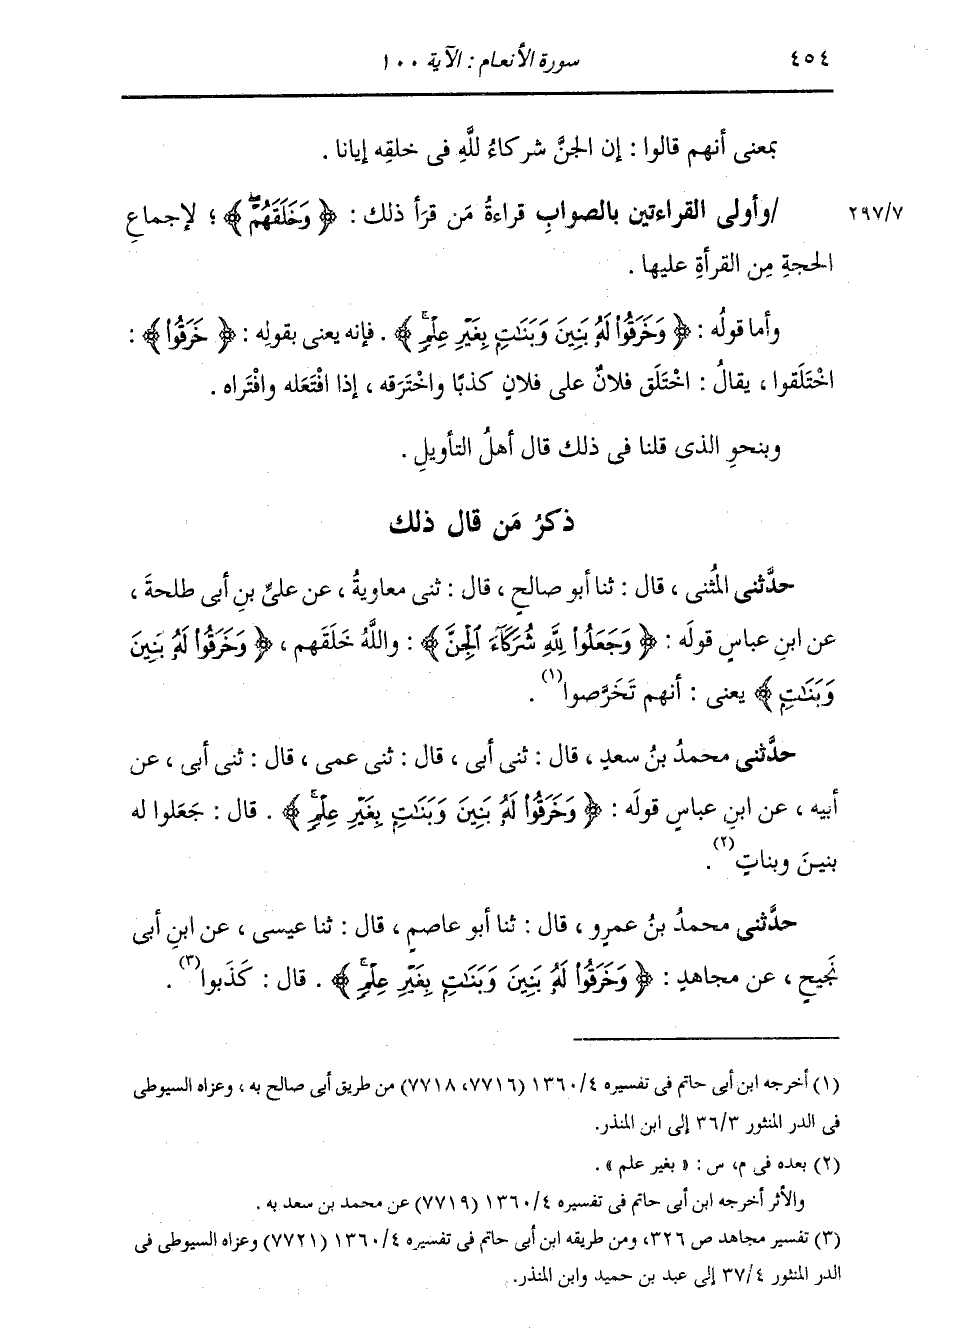 ٤٥٤ سورة الأنعام : الآية ١٠٠
بمعنى أنهم قالوا : إن الجنَّ شركاءُ للَّهِ فى خلقِه إيانا .
٢٩٧/٧ /وأولى القراءتين بالصوابِ قراءةُ مَن قرَأ ذلك : ﴿ وَخَلَقَهُمْ ۖ ﴾ ؛ لإجماعِ
الحجةِ مِن القرأةِ عليها .
وأما قولُه : ﴿ وَخَرَقُوا۟ لَهُۥ بَنِينَ وَبَنَـٰتٍۭ بِغَيْرِ عِلْمٍ ۚ ﴾ . فإنه يعنى بقولِه : ﴿ خَرَقُوا۟ ﴾ :
اخْتَلَقوا ، يقالُ : اخْتَلَق فلانٌ على فلانٍ كذبًا واخْتَرَقه ، إذا افْتَعَله وافْتَراه .
وبنحوِ الذى قلنا فى ذلك قال أهلُ التأويلِ .
ذكرُ مَن قال ذلك
حدَّثنى المُثنى ، قال : ثنا أبو صالحٍ ، قال : ثنى معاويةُ ، عن علىِّ بنِ أبى طلحةَ ،
عن ابنِ عباسٍ قولَه : ﴿ وَجَعَلُوا۟ لِلَّهِ شُرَكَآءَ ٱلْجِنَّ ﴾ : واللَّهُ خَلَقَهم ، ﴿ وَخَرَقُوا۟ لَهُۥ بَنِينَ
وَبَنَـٰتٍ ﴾ يعنى : أنهم تَخَرَّصوا(١) .
حدَّثنى محمدُ بنُ سعدٍ ، قال : ثنى أبى ، قال : ثنى عمى ، قال : ثنى أبى ، عن
أبيه ، عن ابنِ عباسٍ قولَه : ﴿ وَخَرَقُوا۟ لَهُۥ بَنِينَ وَبَنَـٰتٍۭ بِغَيْرِ عِلْمٍ ۚ ﴾ . قال : جَعَلوا له
بنينَ وبناتٍ(٢) .
حدَّثنى محمدُ بنُ عمرٍو ، قال : ثنا أبو عاصمٍ ، قال : ثنا عيسى ، عن ابنِ أبى
نَجيحٍ ، عن مجاهدٍ : ﴿ وَخَرَقُوا۟ لَهُۥ بَنِينَ وَبَنَـٰتٍۭ بِغَيْرِ عِلْمٍ ۚ ﴾ . قال : كَذَبوا(٣) .
(١) أخرجه ابن أبى حاتم فى تفسيره ١٣٦٠/٤ (٧٧١٦، ٧٧١٨) من طريق أبى صالح به ، وعزاه السيوطى
فى الدر المنثور ٣٦/٣ إلى ابن المنذر.
(٢) بعده فى م، س : « بغير علم » .
والأثر أخرجه ابن أبى حاتم فى تفسيره ١٣٦٠/٤ (٧٧١٩) عن محمد بن سعد به .
(٣) تفسير مجاهد ص ٣٢٦، ومن طريقه ابن أبى حاتم فى تفسيره ١٣٦٠/٤ (٧٧٢١) وعزاه السيوطى فى
الدر المنثور ٣٧/٤ إلى عبد بن حميد وابن المنذر.